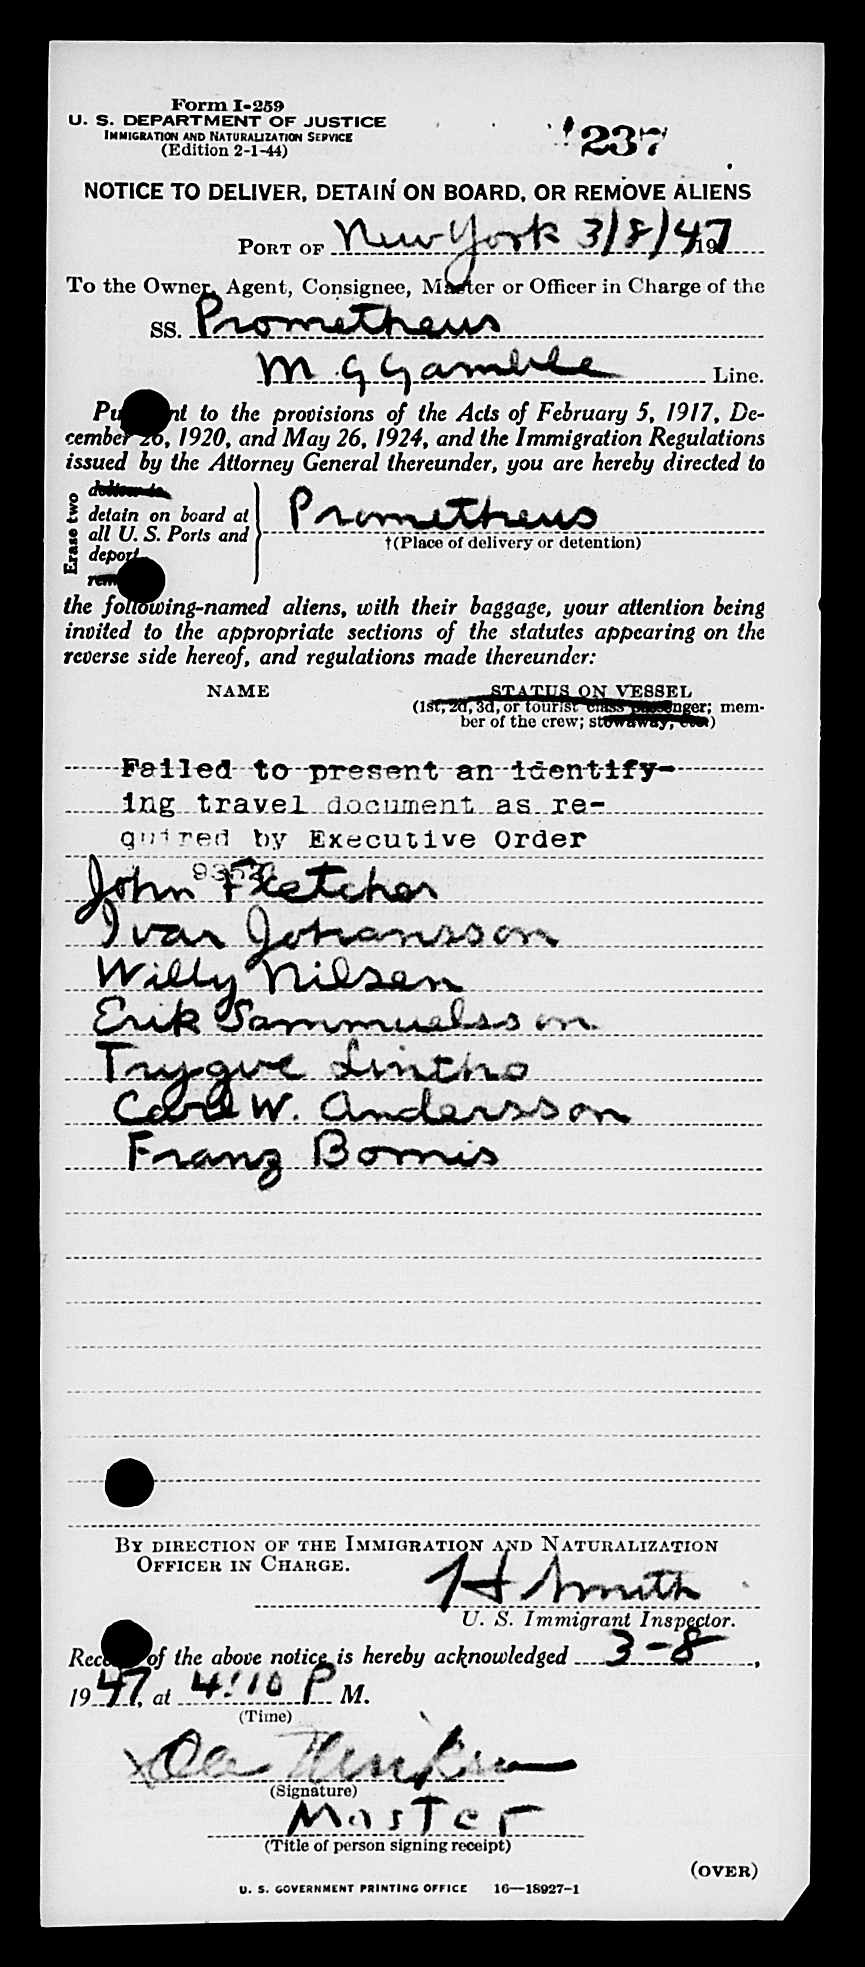 Form I-259
U. S. DEPARTMENT OF JUSTICE
IMMIGRATION AND NATURALIZATION SERVICE
(Edition 2-1-44)
237
NOTICE TO DELIVER, DETAIN ON BOARD, OR REMOVE ALIENS
PORT OF New York 3/8/47 19
To the Owner, Agent, Consignee, Master or Officer in Charge of the
SS. Prometheus
M G Gamble Line.
to the provisions of the Acts of February 5, 1917, De-
cember 26, 1920, and May 26, 1924, and the Immigration Regulations
issued by the Attorney General thereunder, you are hereby directed to
Erase two
detain on board at
all U. S. Ports and
deport
Prometheus
†(Place of delivery or detention)
the following-named aliens, with their baggage, your attention being
invited to the appropriate sections of the statutes appearing on the
reverse side hereof, and regulations made thereunder:
NAME STATUS ON VESSEL
(1st, 2d, 3d, or tourist class passenger; mem-
ber of the crew; stowaway, etc.)
Failed to present an identify-
ing travel document as re-
quired by Executive Order
John Fletcher
Ivar Johansson
Willy Nilsen
Erik Sammuelsson
Trygve Lintho
Carl W. Andersson
Franz Bomis
BY DIRECTION OF THE IMMIGRATION AND NATURALIZATION
OFFICER IN CHARGE.
H Smith
U. S. Immigrant Inspector.
of the above notice is hereby acknowledged 3-8,
1947, at 4:10 P M.
(Time)
(Signature)
Master
(Title of person signing receipt)
(OVER)
U. S. GOVERNMENT PRINTING OFFICE 16—18927-1